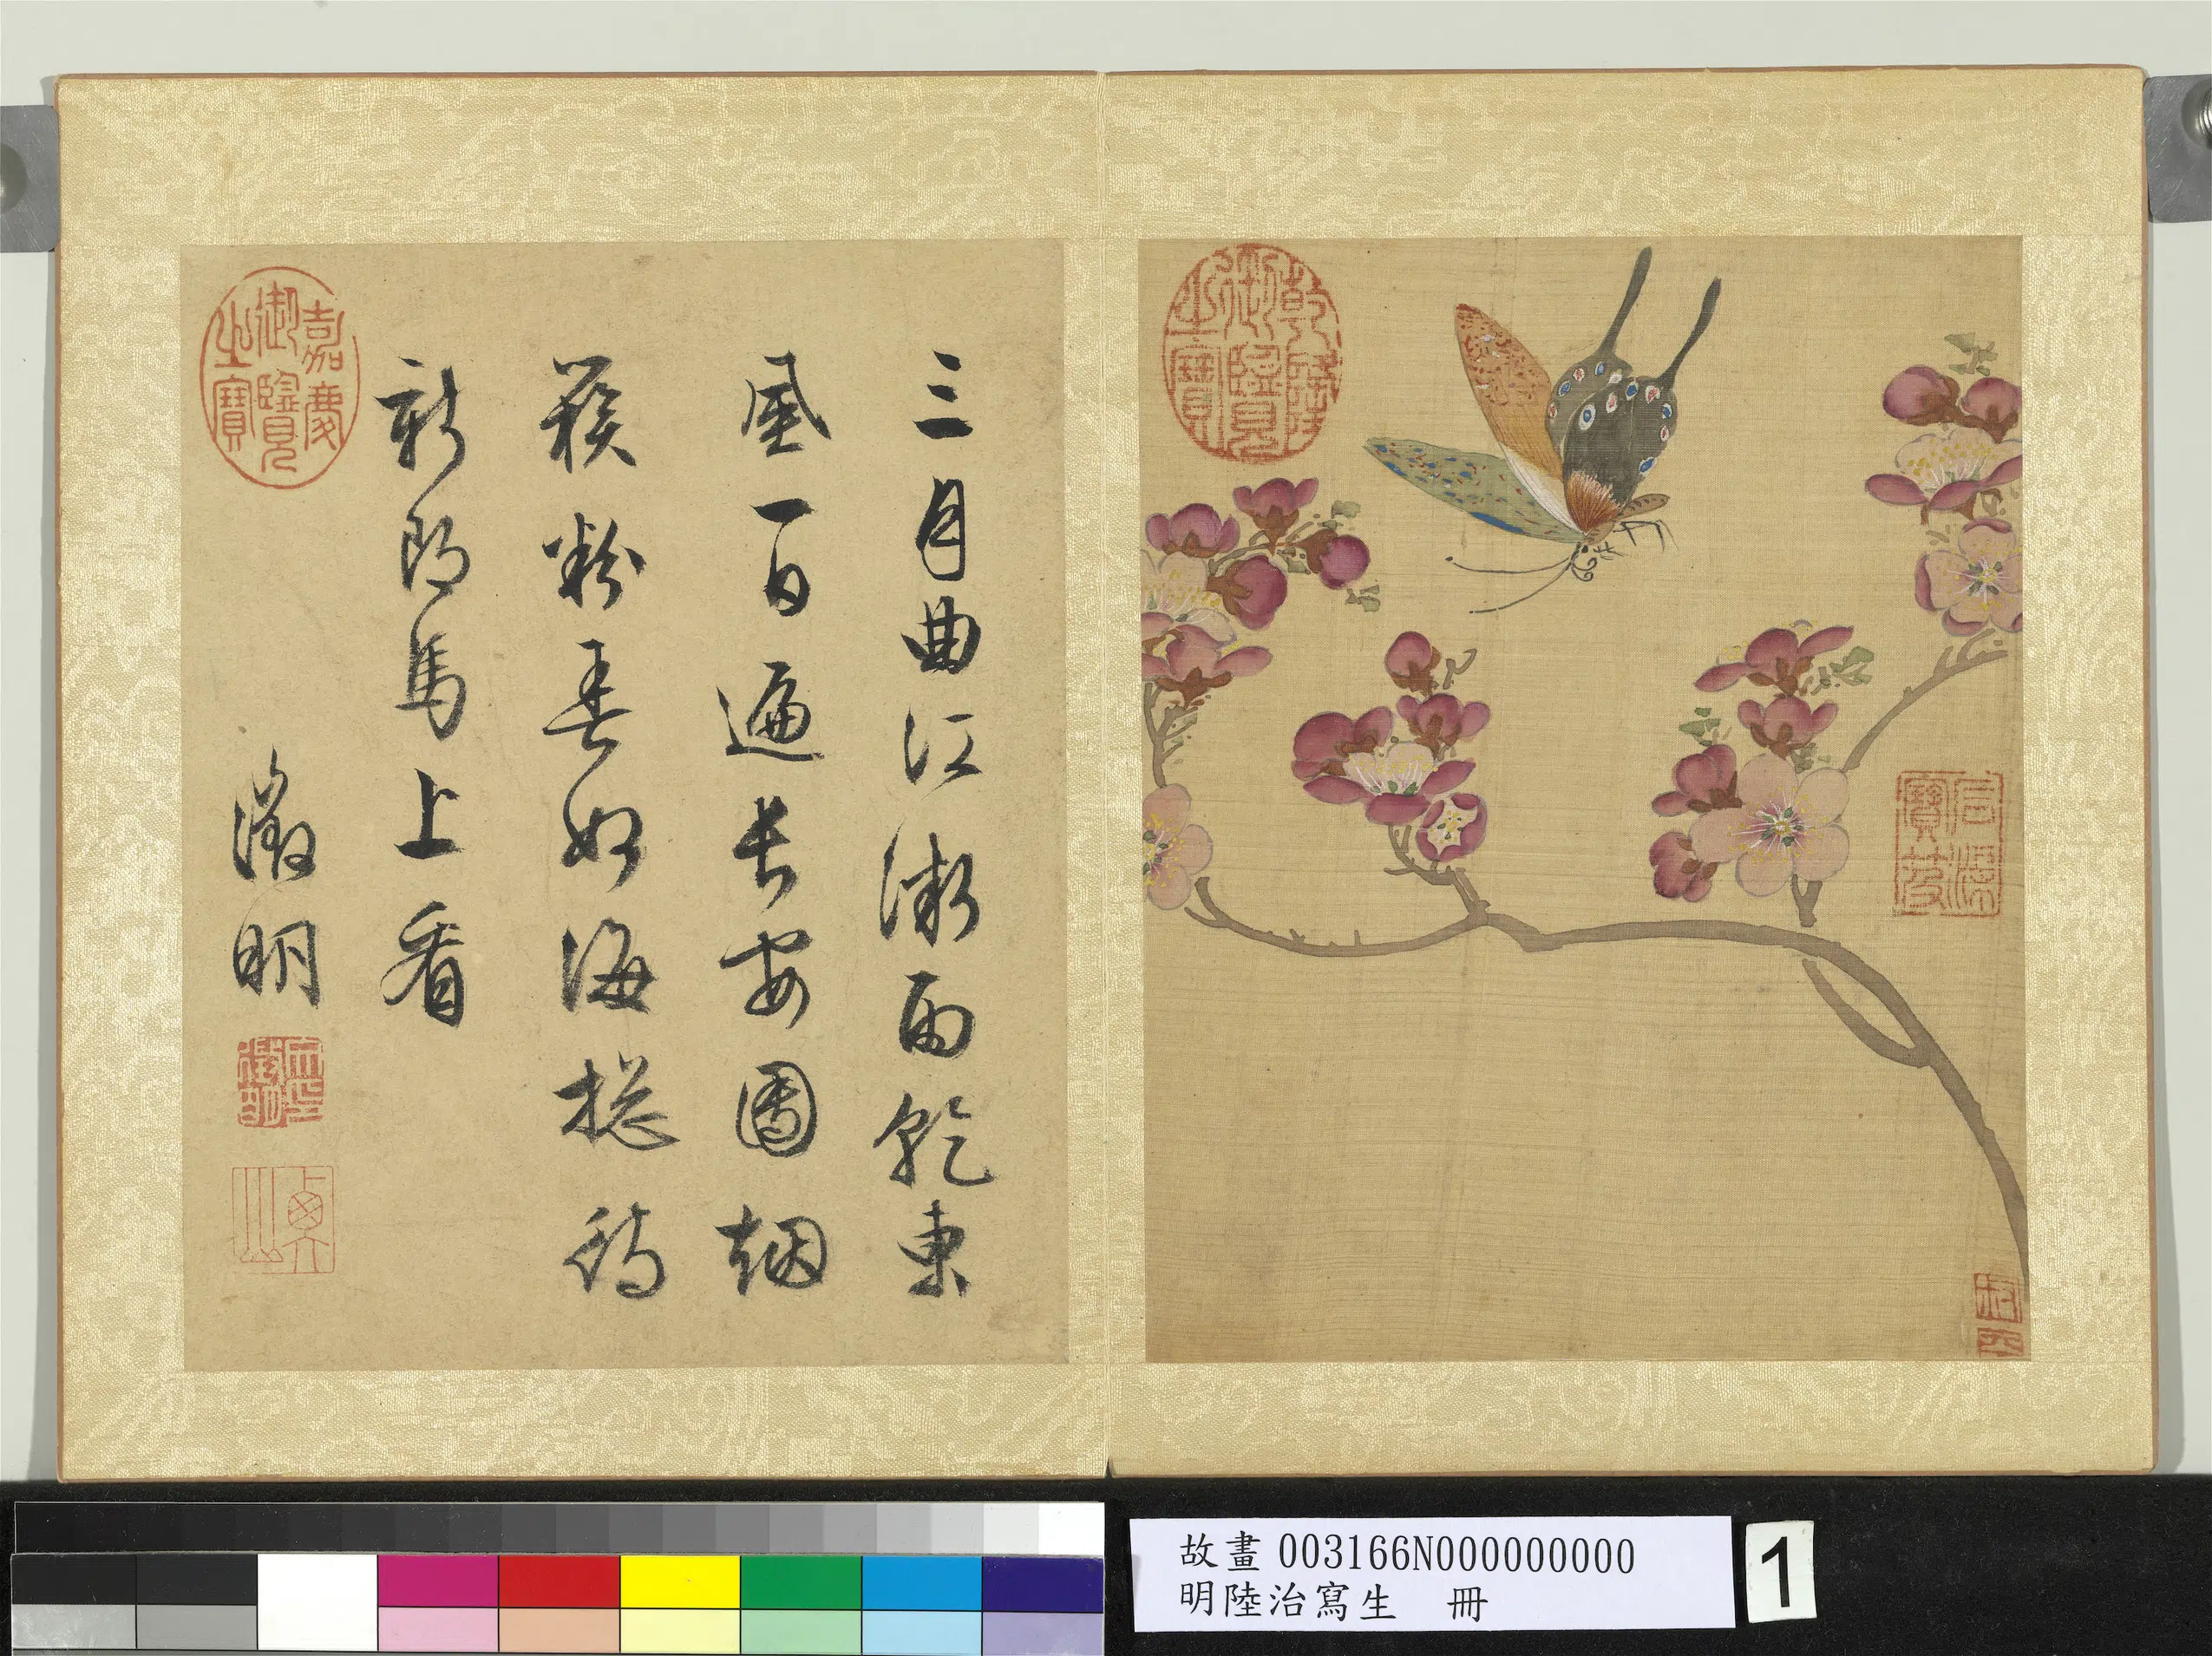 乾隆御覽之寶
石渠寶笈
三月曲江微雨乾東
風一日遍長安團烟
簇粉春如海摠待
新郎馬上看
徵明
嘉慶御覽之寶
故畫 003166N000000000
明陸治寫生 冊
1